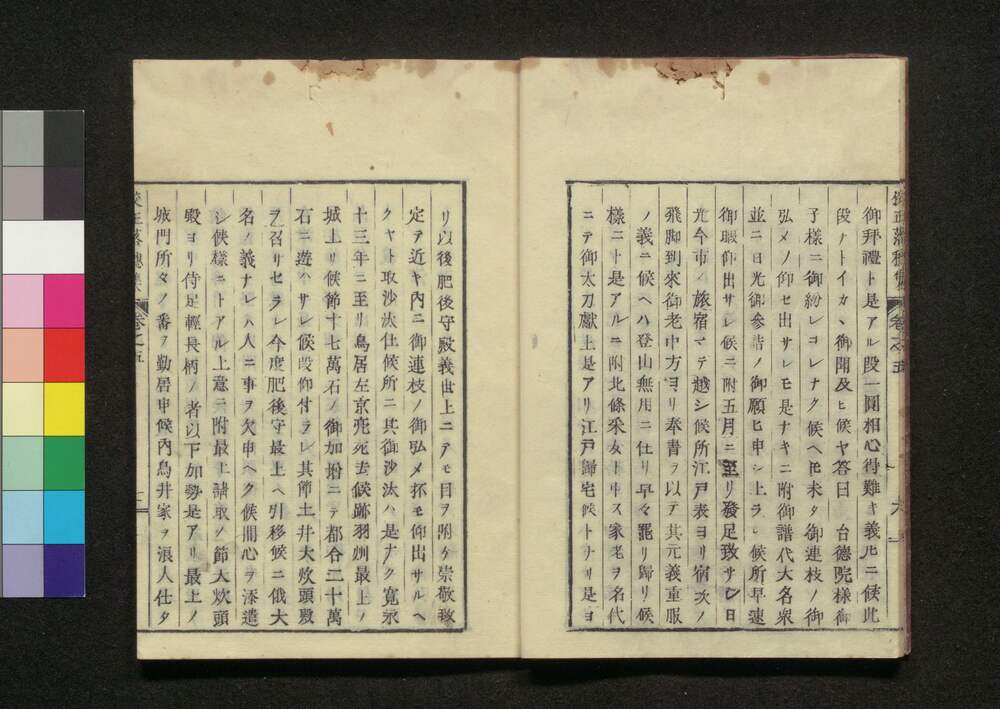 御拜禮ト是アル段一圓相心得難キ義ニ候此
段ノトイカヽ御聞及ヒ候ヤ答曰　台德院樣御
子樣ニ御紛レコレナク候ヘ𪜈未タ御連枝ノ御
弘メノ仰セ出サレモ是ナキニ附御譜代大名衆
並ニ日光御參詣ノ御願ヒ申シ上ラレ候所早速
御暇仰出サレ候ニ附五月ニ至リ發足致サレ日
光今市ノ旅宿マテ越シ候所江戸表ヨリ宿次ノ
飛脚到來御老中方ヨリ奉書ヲ以テ其元義重服
ノ義ニ候ヘハ登山無用ニ仕リ早々罷リ歸リ候
樣ニト是アルニ附北條采女ト申ス家老ヲ名代
ニテ御太刀獻上是アリ江戸歸宅候トナリ是ヨ
卷之五
リ以後肥後守殿義世上ニテモ目ヲ附ケ崇敬致
定テ近キ內ニ御連枝ノ御弘メ抔モ仰出サルヘ
クヤト取沙汰仕候所ニ其御沙汰ハ是ナク寬永
十三年ニ至リ鳥居左京亮死去候跡羽州最上ノ
城上リ候節十七萬石ノ御加增ニテ都合二十萬
石ニ遊ハサレ候段仰付ラレ其節土井大炊頭殿
ヲ召リセラレ今度肥後守最上ヘ引移候ニ俄大
名ノ義ナレハ人ニ事ヲ欠申ヘク候間心ヲ添遣
シ候樣ニトアル上意ニ附最上請取ノ節大炊頭
殿ヨリ侍足輕長柄ノ者以下加勢是アリ最上ノ
城門所々ノ番ヲ勤居申候內鳥井家ヲ浪人仕タ
卷之五